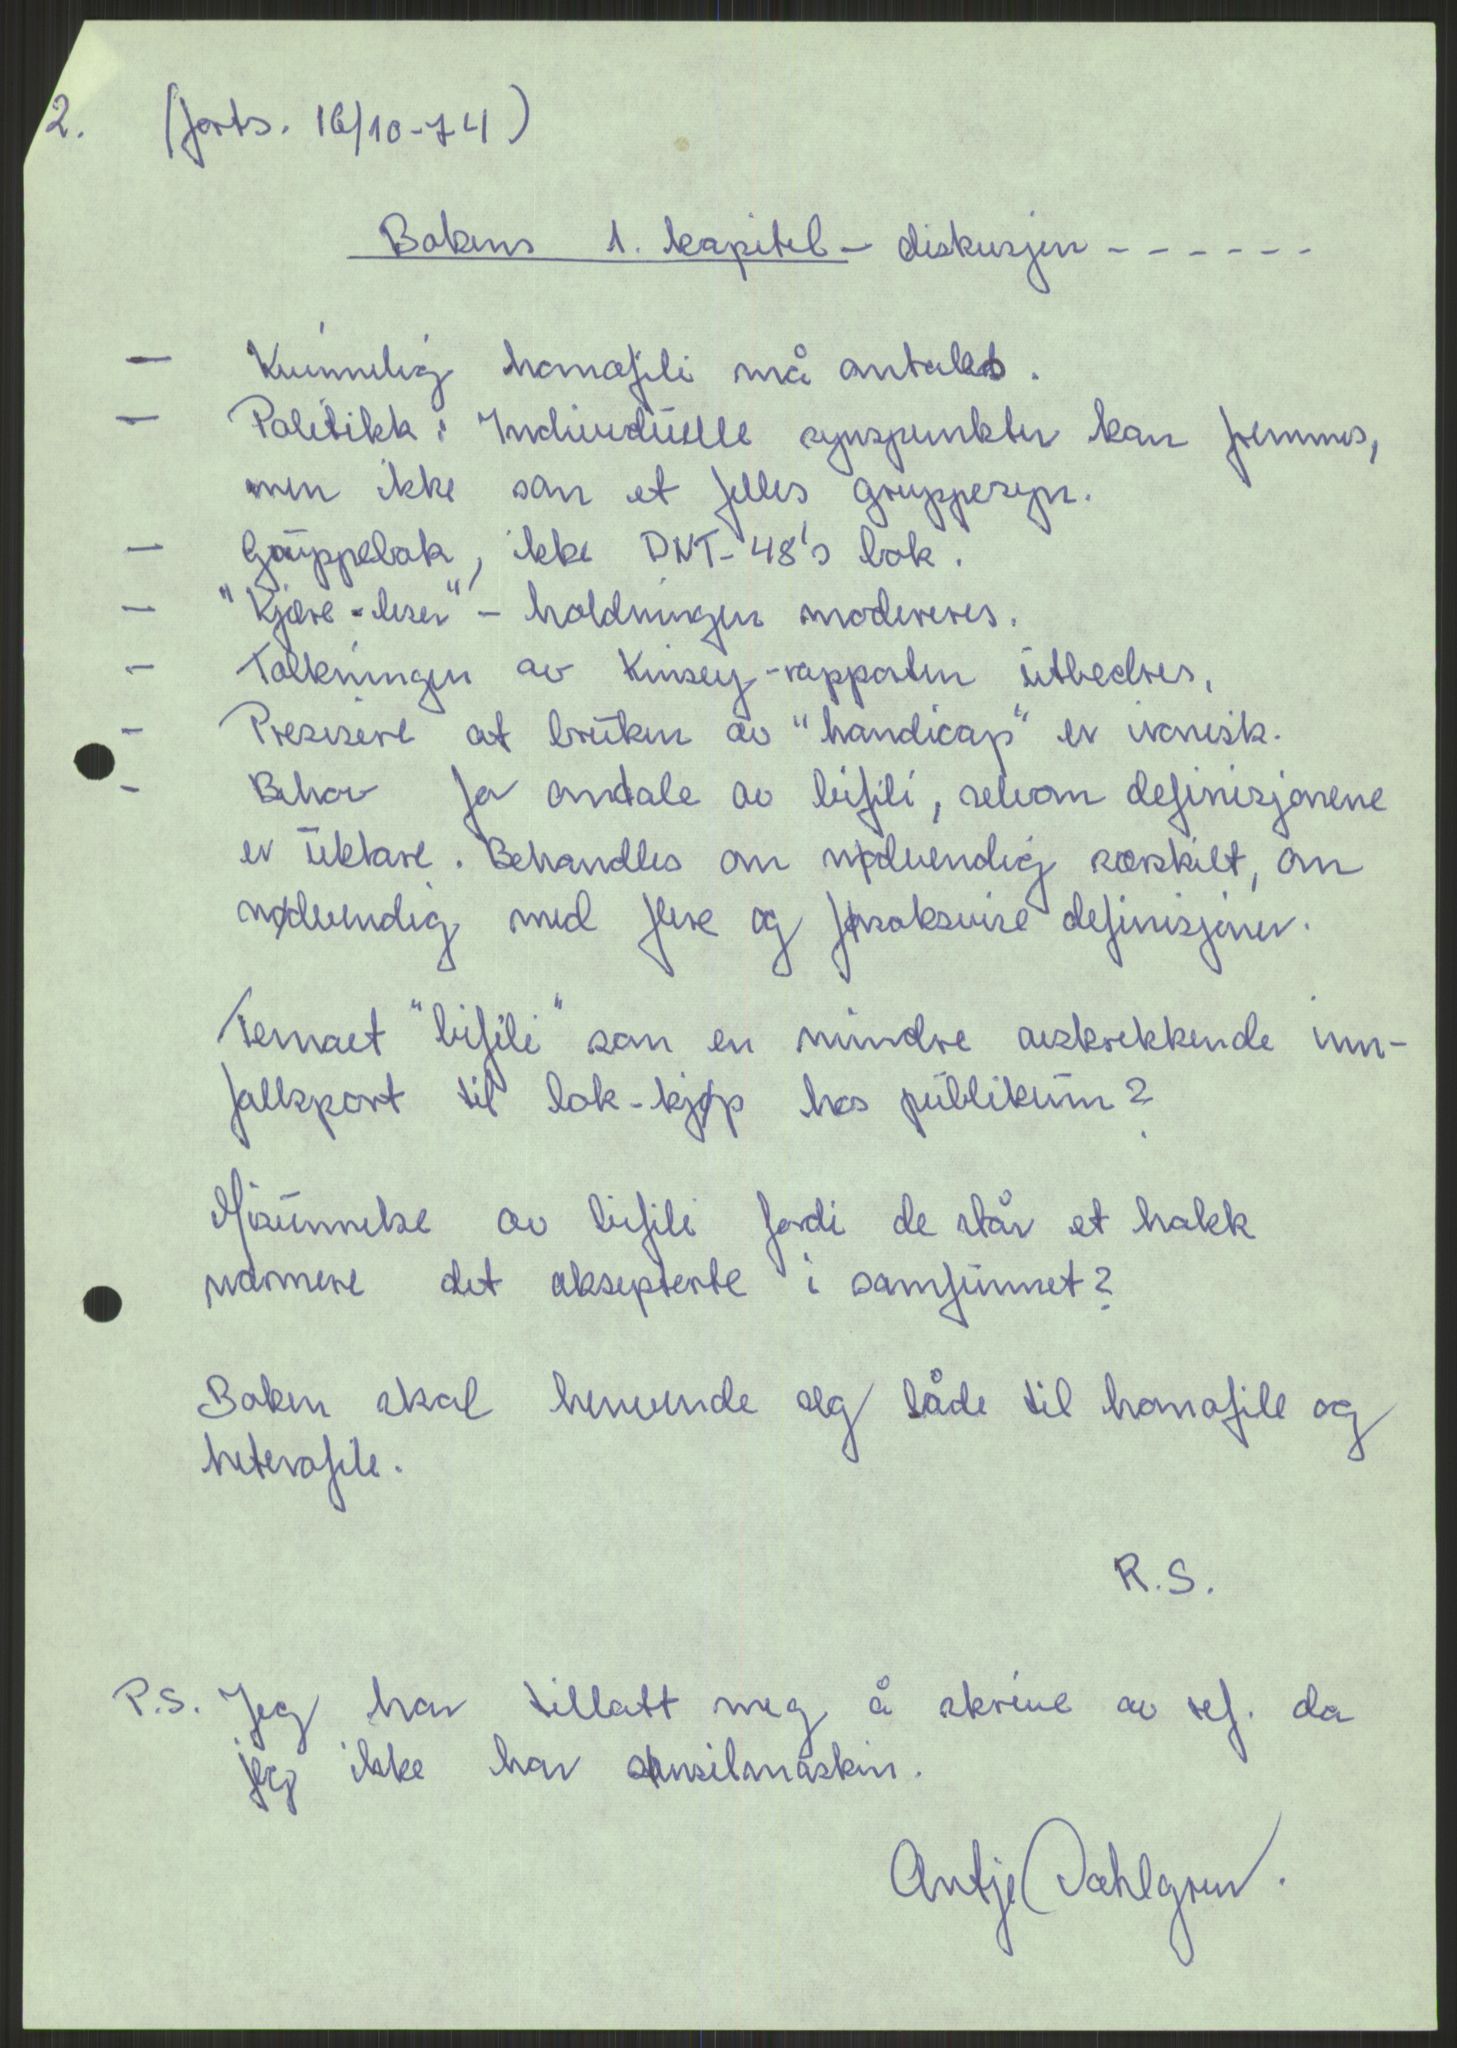 2. (forts. 16/10-74)
Bokens 1. kapitel - diskusjon ------
- Kvinnelig homofili må omtales.
- Politikk: Individuelle synspunkter kan fremmes,
men ikke som et felles gruppesyn.
- Gruppebok, ikke DNF-48's bok.
- "Kjære-leser" - holdningen modereres.
- Tolkningen av Kinsey-rapporten utbedres.
- Presisere at bruken av "handicap" er ironisk.
- Behov for omtale av bifili, selvom definisjonene
er uklare. Behandles om nødvendig særskilt, om
nødvendig med flere og forsøksvise definisjoner.
Temaet "bifili" som en mindre avskrekkende inn-
fallsport til bok-kjøp hos publikum?
Misunnelse av bifili fordi de står et hakk
nærmere det aksepterte i samfunnet?
Boken skal henvende seg både til homofile og
heterofile.
R.S.
P.S. Jeg har tillatt meg å skrive av ref. da
jeg ikke har stensilmaskin.
Antje Dahlgren.